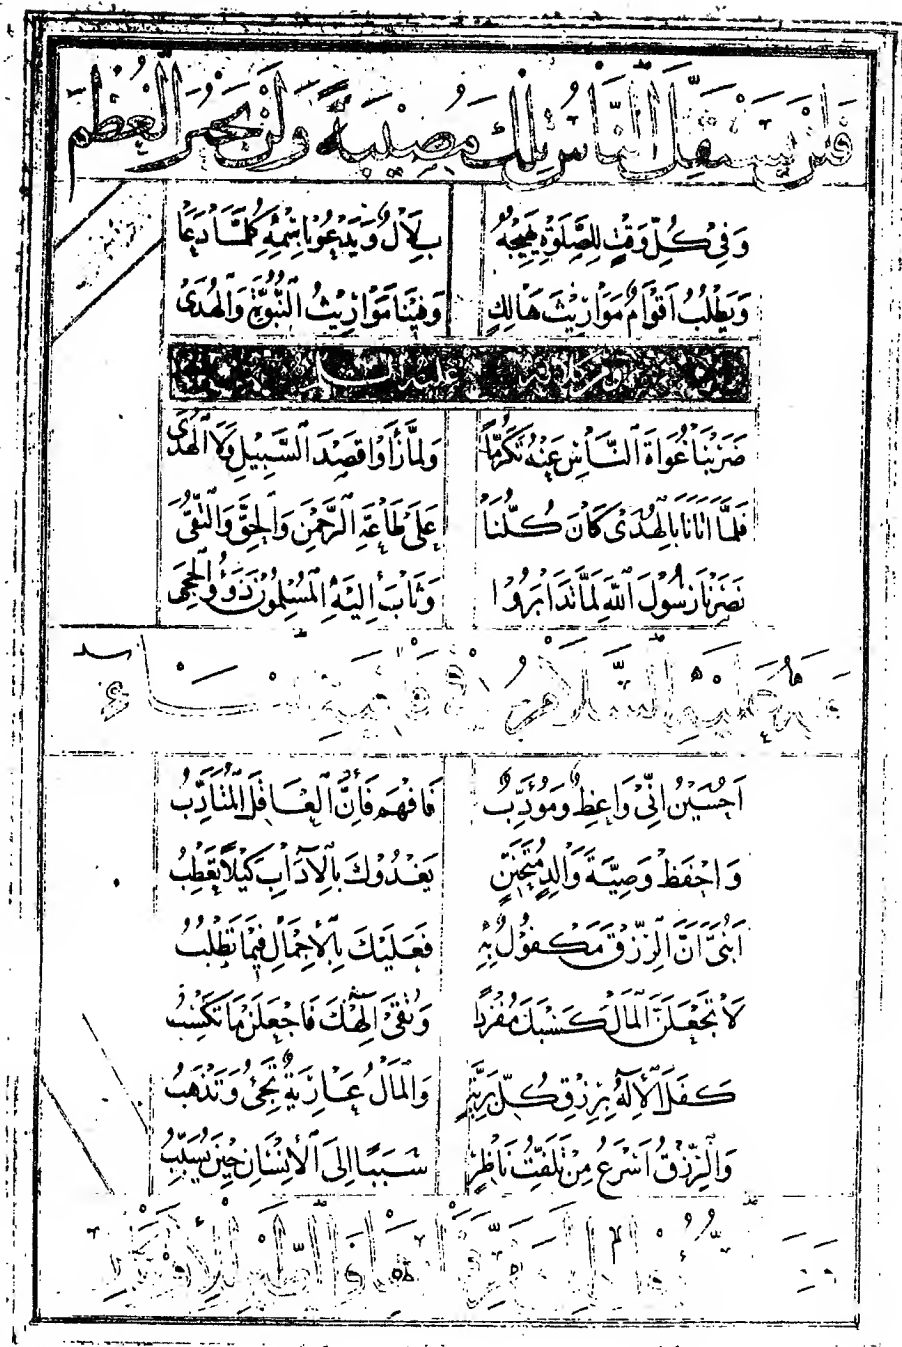 فَلَنْ يَسْتَقِلَّ النَّاسُ تِلْكَ مُصِيْبَةً وَلَنْ يُجْبَرَ الْعَظْمُ
وَفِيْ كُلِّ وَقْتٍ لِلصَّلٰوةِ يَهِيْجُهُ بِلَالٌ وَيَدْعُوْ بِاسْمِهِ كُلَّمَا دَعَا
وَيَطْلُبُ اَقْوَامٌ مَوَارِيْثَ هَالِكٍ وَفِيْنَا مَوَارِيْثُ النُّبُوَّةِ وَالْهُدٰى
ضَرَبْنَا غُوَاةَ النَّاسِ عَنْهُ تَكَرُّمًا وَلَمَّا رَأَوْا قَصْدَ السَّبِيْلِ وَلَا الْهُدٰى
فَلَمَّا اَتَانَا بِالْهُدٰى كَانَ كُلُّنَا عَلٰى طَاعَةِ الرَّحْمٰنِ وَالْحَقِّ وَالتُّقٰى
نَصَرْنَا رَسُوْلَ اللهِ لَمَّا تَدَابَرُوْا وَثَابَ اِلَيْهِ الْمُسْلِمُوْنَ ذَوُو الْحِجٰى
اَحُسَيْنُ اِنِّيْ وَاعِظٌ وَمُؤَدِّبٌ فَافْهَمْ فَاِنَّ الْعَاقِلَ الْمُتَأَدِّبُ
وَاحْفَظْ وَصِيَّةَ وَالِدٍ مُتَحَنِّنٍ يَغْذُوْكَ بِالْاٰدَابِ كَيْلَا تَعْطَبُ
اَبُنَيَّ اِنَّ الرِّزْقَ مَكْفُوْلٌ بِهِ فَعَلَيْكَ بِالْاِجْمَالِ فِيْمَا تَطْلُبُ
لَا تَجْعَلَنَّ الْمَالَ كَسْبَكَ مُفْرَدًا وَتُقٰى اِلٰهِكَ فَاجْعَلَنْ مَا تَكْسِبُ
كَفَلَ الْاِلٰهُ بِرِزْقِ كُلِّ بَرِيَّةٍ وَالْمَالُ عَارِيَةٌ تَجِيْءُ وَتَذْهَبُ
وَالرِّزْقُ اَسْرَعُ مِنْ تَلَفُّتِ نَاظِرٍ سَبَبًا اِلَى الْاِنْسَانِ حِيْنَ يُسَبَّبُ